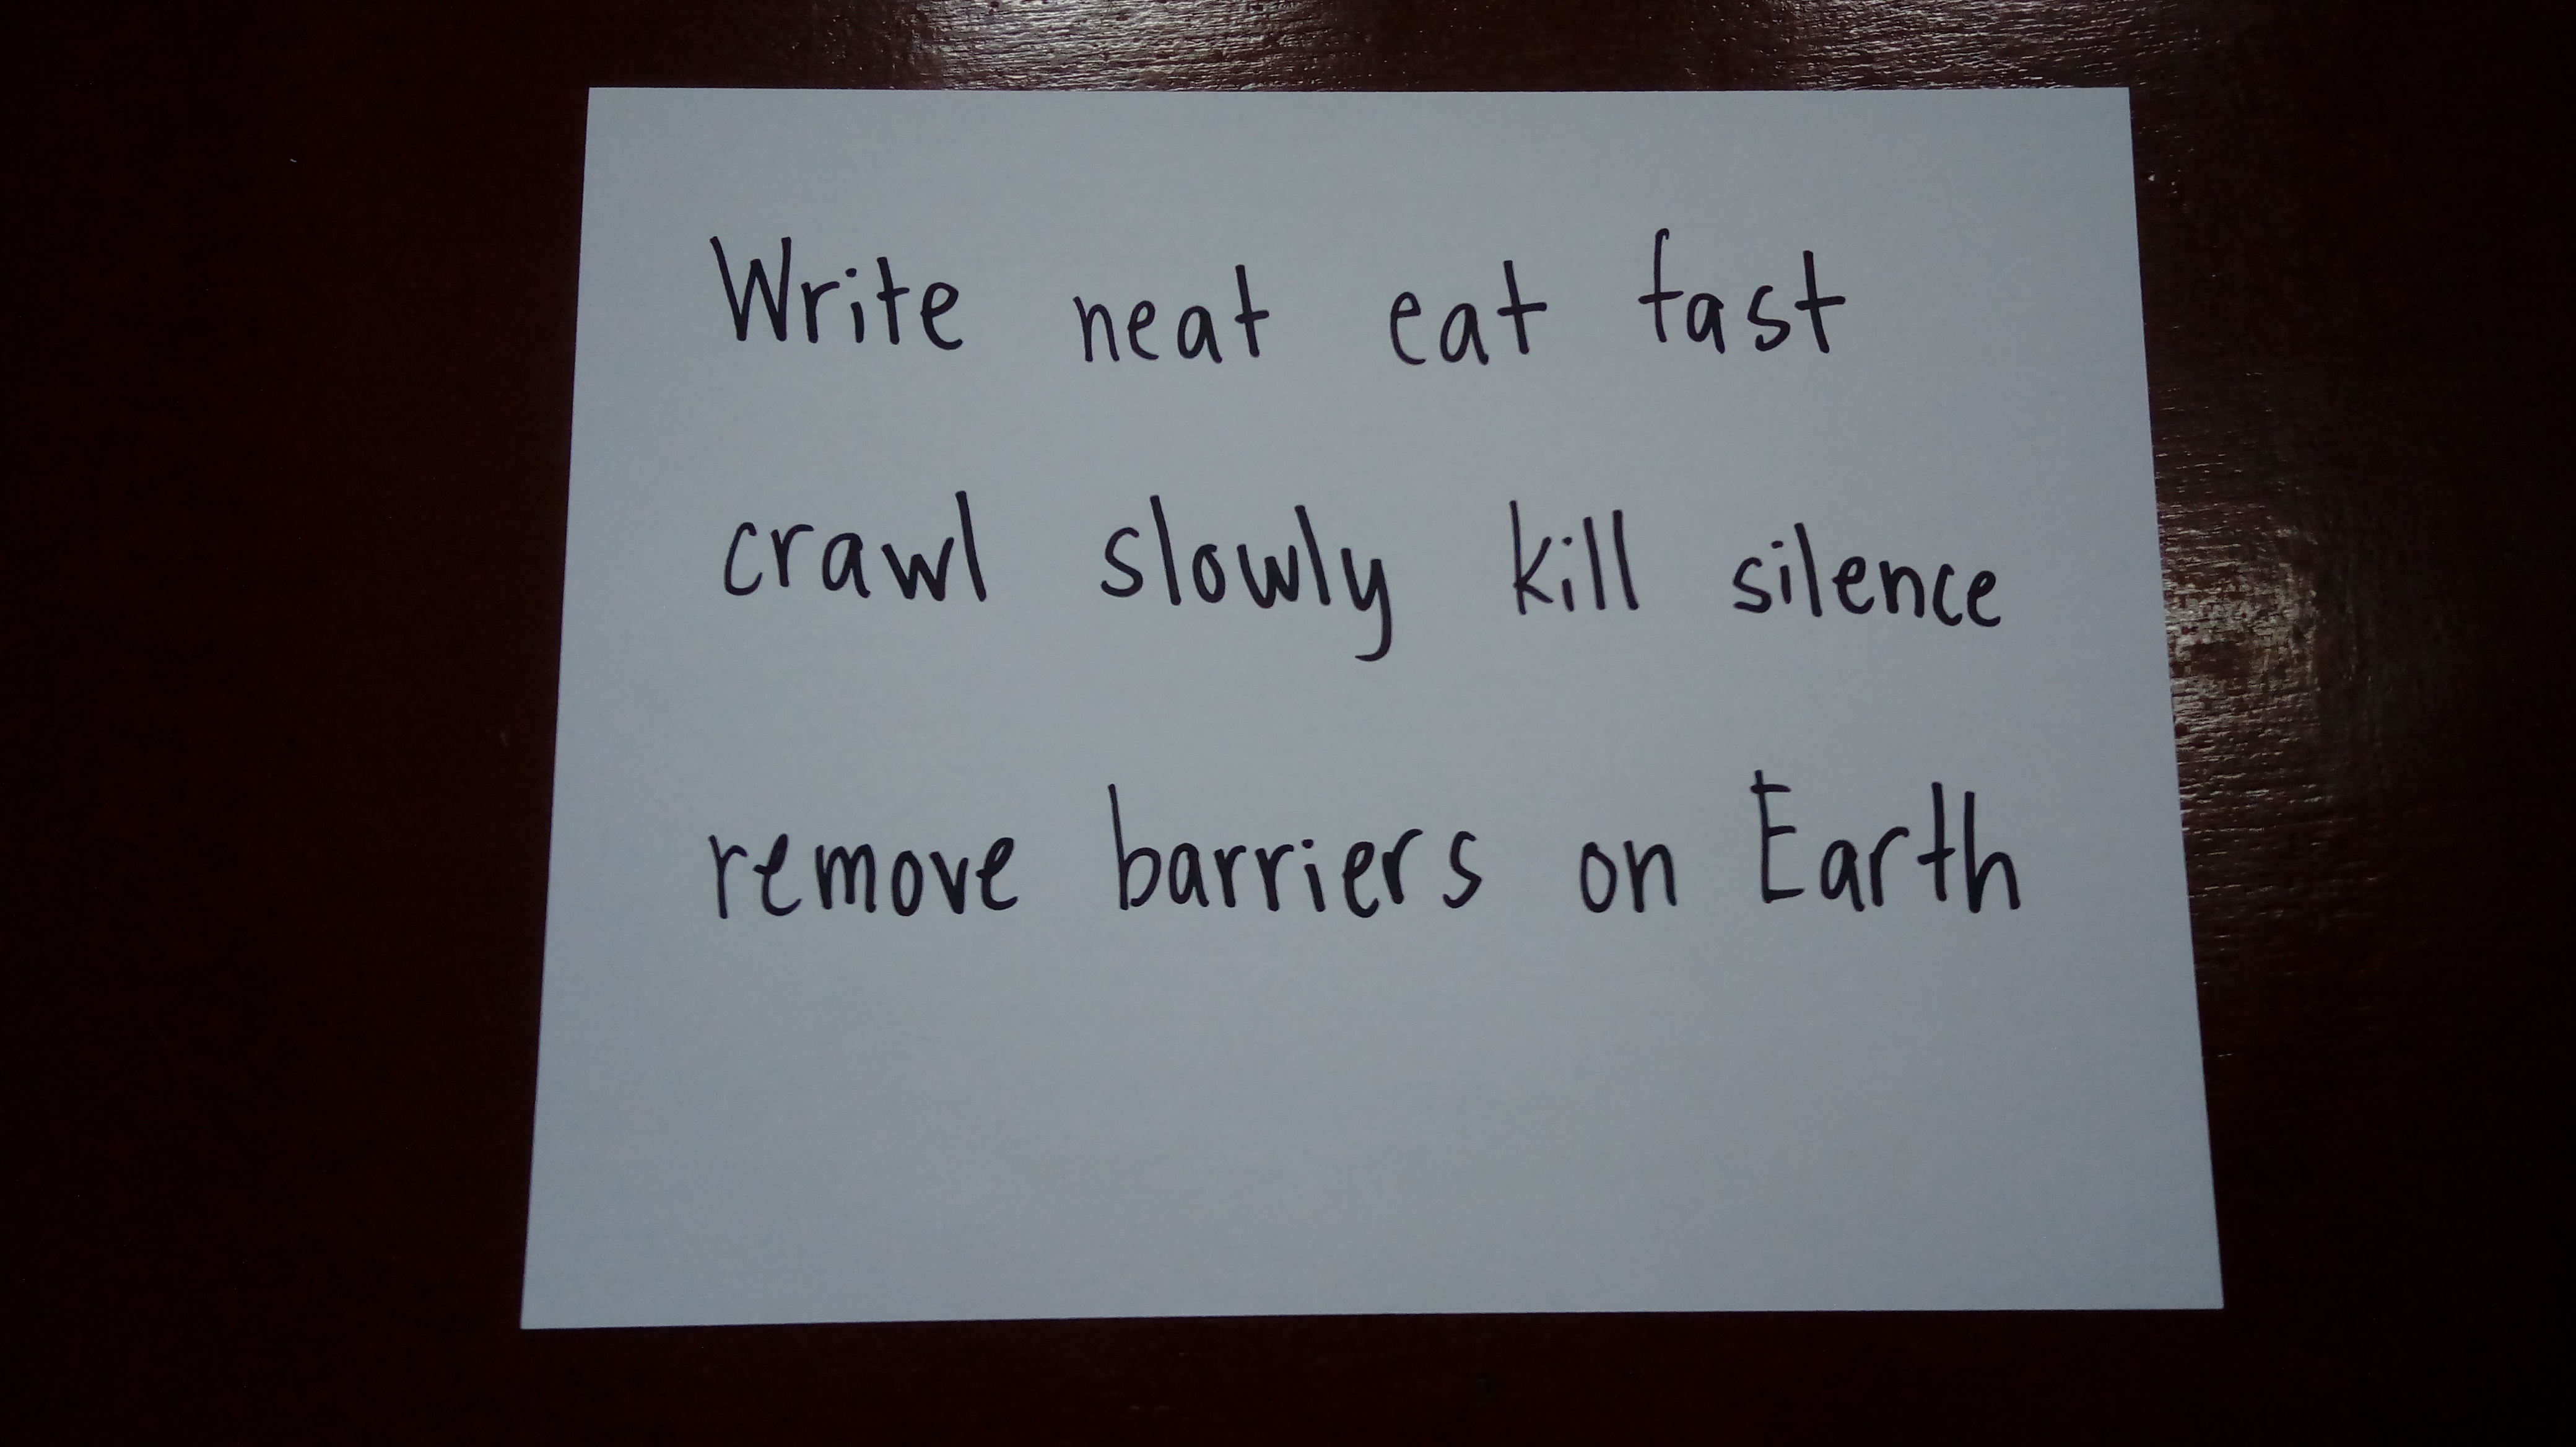 Write neat eat fast
crawl slowly kill silence
remove barriers on Earth